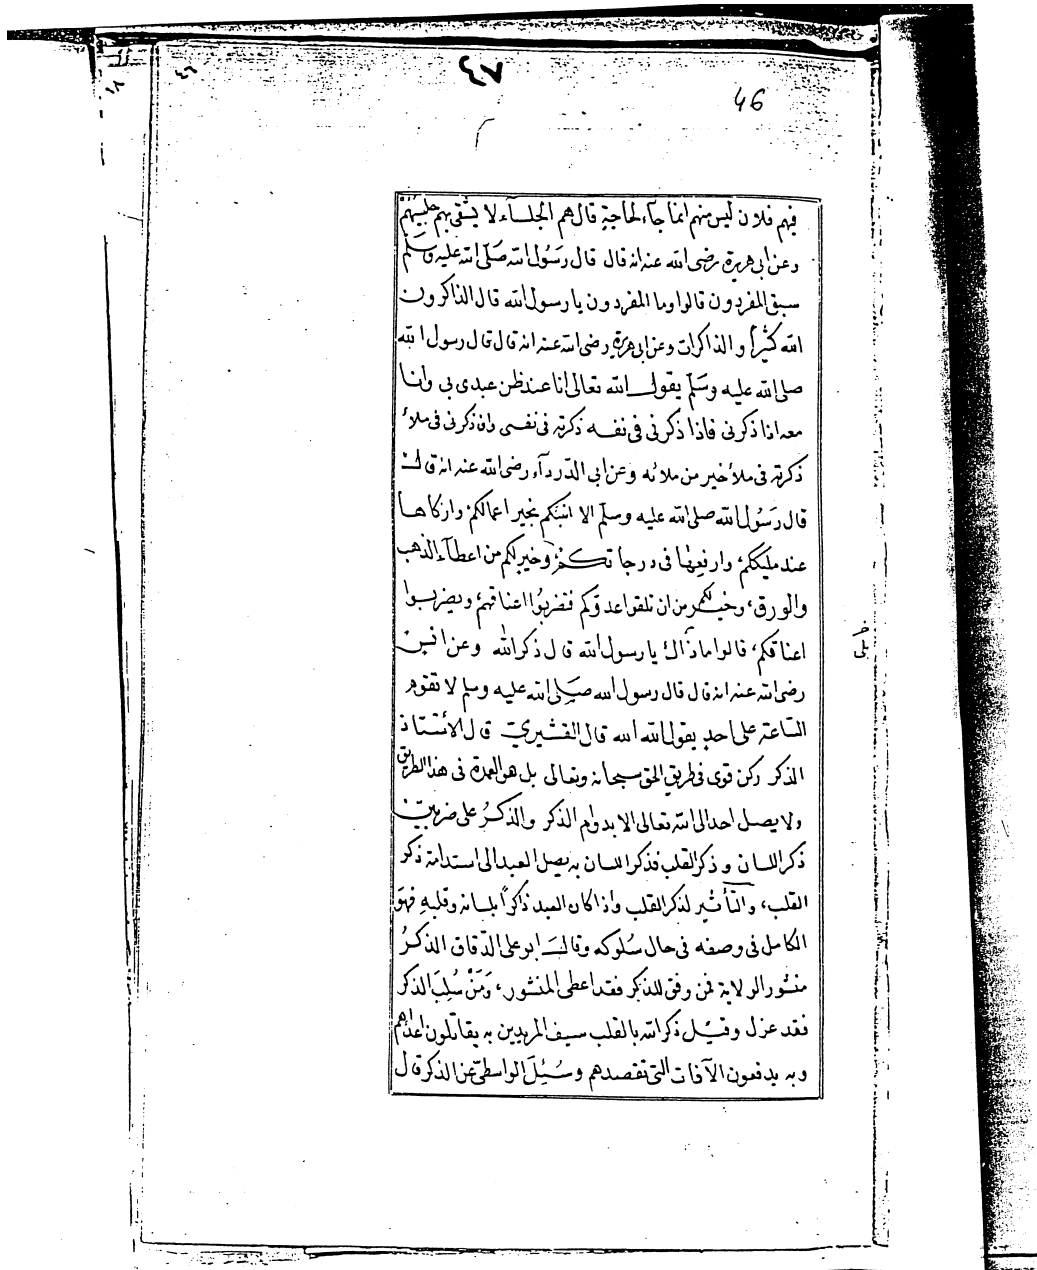 ٤٨
46
٤٦
١٨
فيهم فلان ليس منهم انما جآء لحاجةٍ قال هم الجلسآء لا يشقى بهم جليسهم
وعن ابى هريرة رضى الله عنه انه قال قال رَسُول الله صَلّى الله عليه وسَلّم
سبق المفردون قالوا وما المفردون يا رسول الله قال الذاكرون
الله كثيراً والذاكرات وعن ابى هريرة رضى الله عنه انه قال قال رسول الله
صلى الله عليه وسَلّم يقول الله تعالى انا عند ظن عبدى بى وانا
معه اذا ذكرنى فاذا ذكرنى فى نفسه ذكرته فى نفسى وان ذكرنى فى ملأ
ذكرته فى ملأ خير من ملائه وعن ابى الدّردآء رضى الله عنه انه قال
قال رَسُول الله صلى الله عليه وسلّم الا انبئكم بخير اعمالكم وازكاها
عند مليككم، وارفعها فى درجاتكم، وخير لكم من اعطآء الذهب
والورق، وخير لكم من ان تلقوا عدوّكم فتضربُوا اعناقهم، ويضربوا
اعناقكم، قالوا ما ذاك يا رسول الله قال ذكر الله وعن انس
رضى الله عنه انه قال قال رسول الله صلى الله عليه وسلم لا تقوم
السّاعة على احدٍ يقول الله الله قال القشيرى قال الاستاذ
الذكر ركن قوى فى طريق الحق سبحانه وتعالى بل هو العمدة فى هذا الطريق
ولا يصل احد الى الله تعالى الا بدوام الذكر والذكرُ على ضربين
ذكر اللسان وذكر القلب فذكر اللسان به يصل العبد الى استدامة ذكر
القلب، والتأثير لذكر القلب واذا كان العبد ذاكراً بلسانه وقلبهِ فهوَ
الكامل فى وصفه فى حال سُلوكه وقالَ ابو على الدّقاق الذكرُ
منشور الولاية فمن وفق للذكر فقد اعطى المنشور، وَمَنْ سُلِبَ الذكر
فقد عزل وقيل ذكر الله بالقلب سيف المريدين به يقاتلون اعداءهم
وبه يدفعون الآفات التى تقصدهم وسُئِلَ الواسطىّ عن الذكر قال